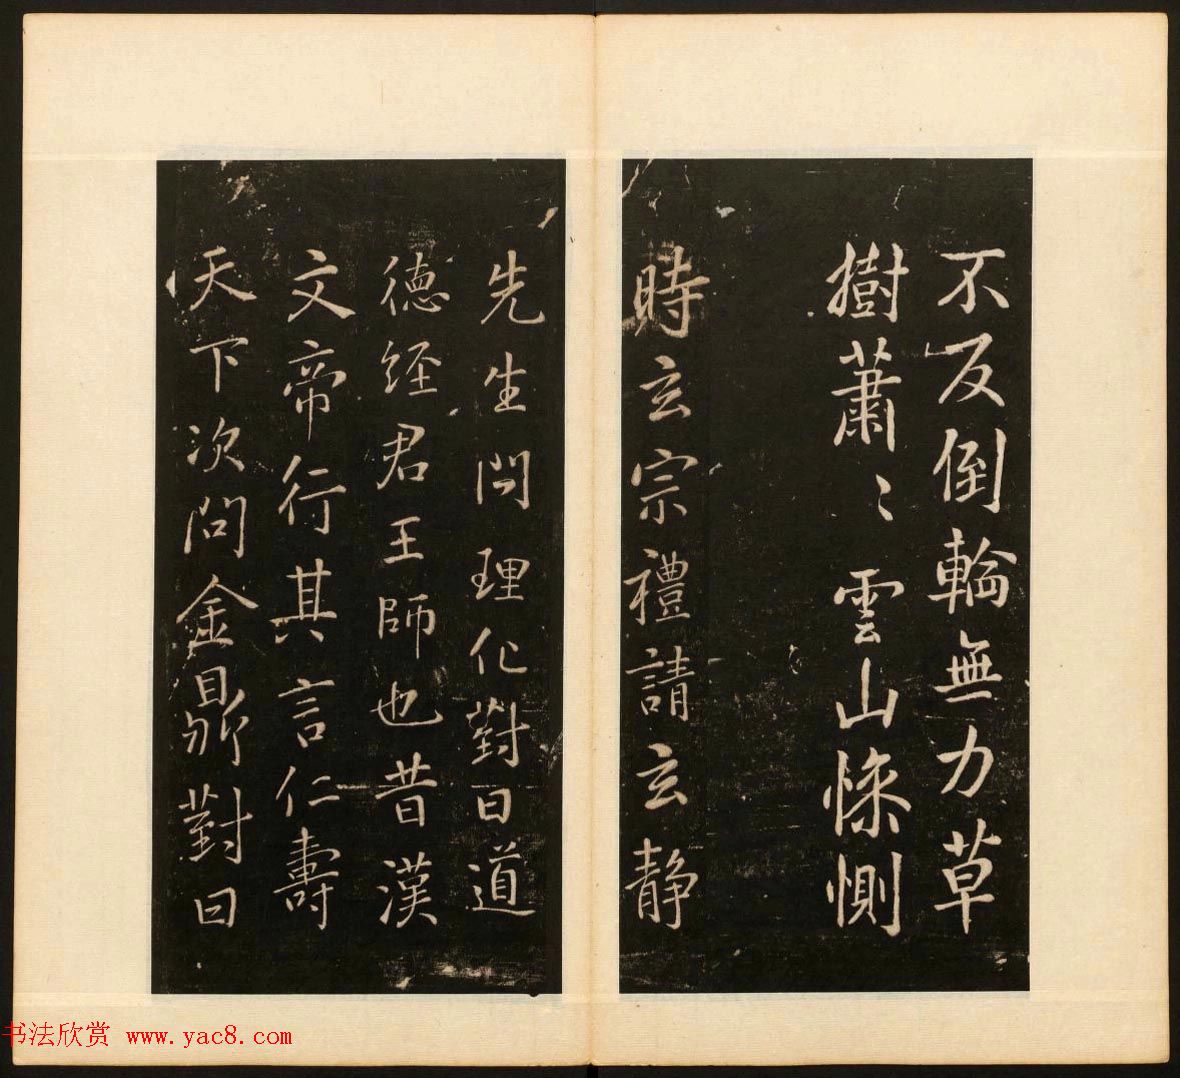 不反倒輪無力草
樹蕭〻雲山慘惻
時玄宗禮請玄静
先生問理化對曰道
德經君王師也昔漢
文帝行其言仁壽
天下次問金鼎對曰
书法欣赏 www.yac8.com